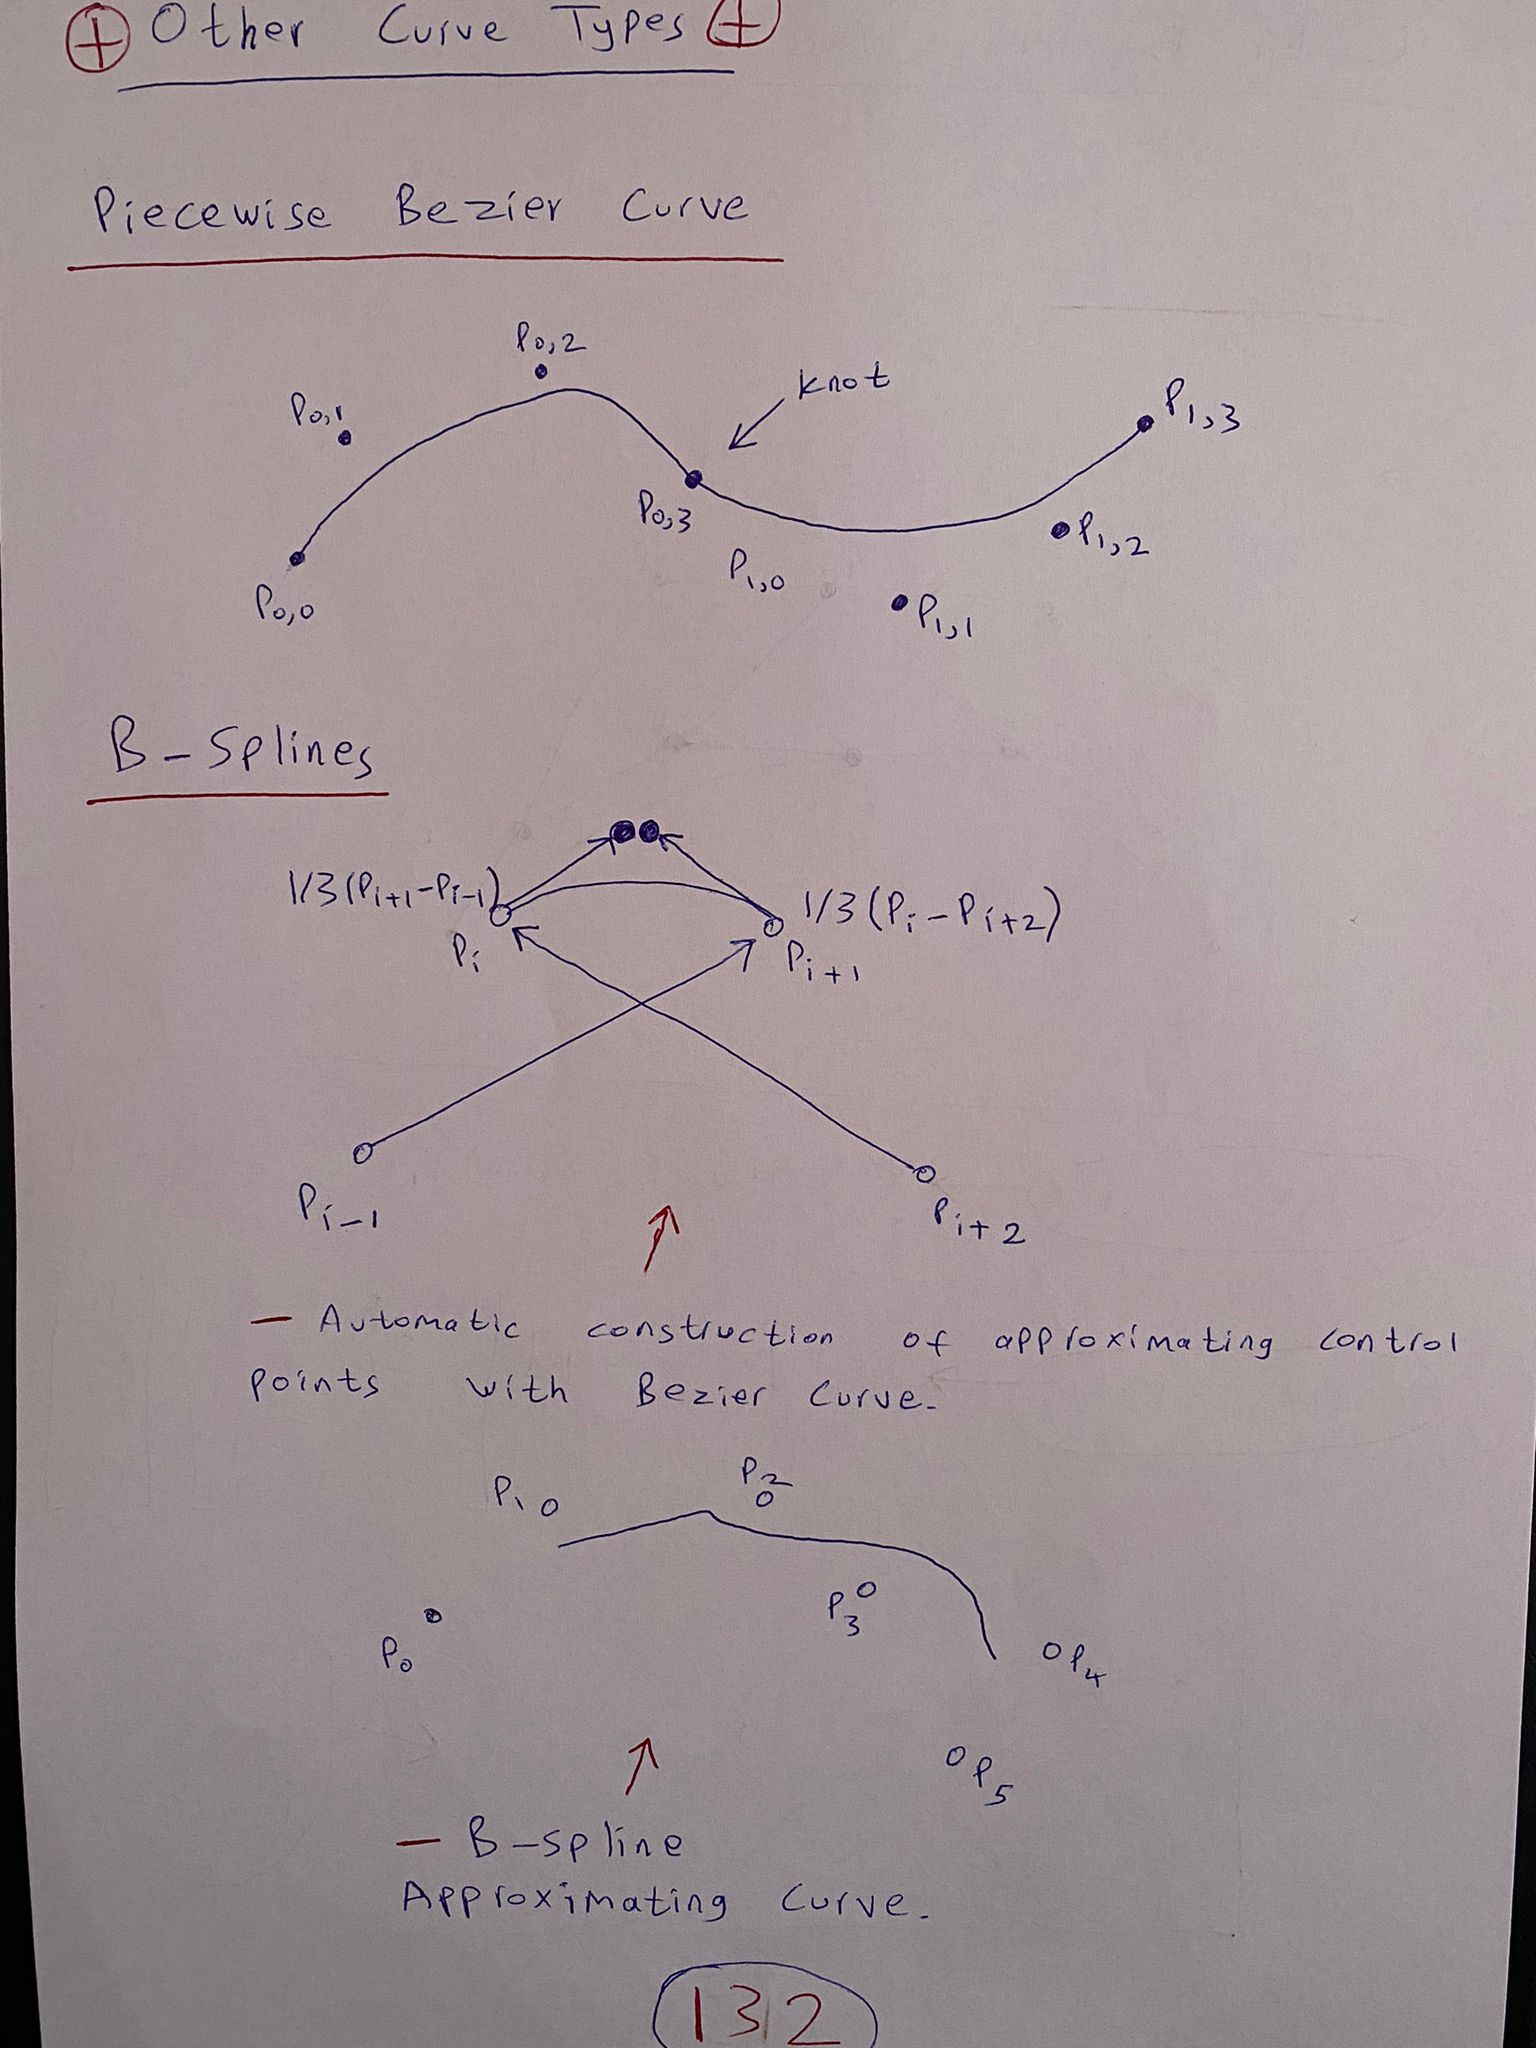 ⊕ Other Curve Types ⊕
Piecewise Bezier Curve
P0,2
P0,1
knot
P1,3
P0,3
P1,2
P1,0
P0,0
P1,1
B-Splines
1/3(Pi+1-Pi-1)
1/3(Pi-Pi+2)
Pi
Pi+1
Pi-1
Pi+2
- Automatic construction of approximating control
points with Bezier Curve.
P1
P2
P3
P0
P4
P5
- B-spline
Approximating Curve.
132